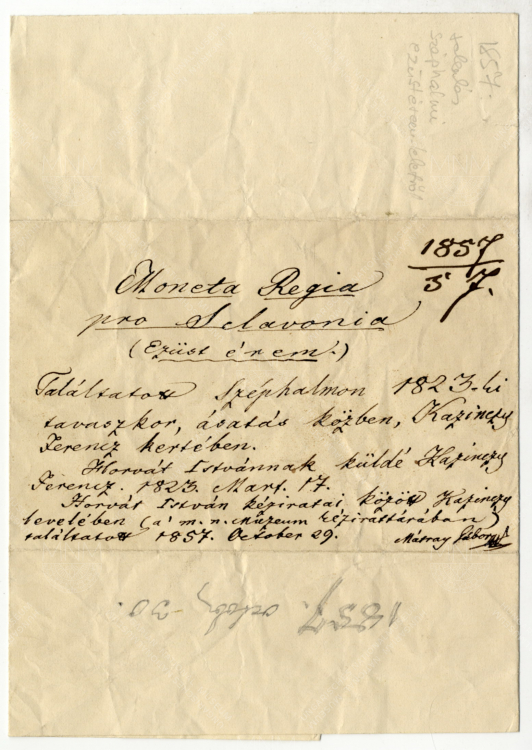 1857.
találás
széphalmi
ezüstéremleletről
1857
57.
Moneta Regia
pro Sclavonia
(Ezüst érem.)
Találtatott Széphalmon 1823-ki
tavaszkor, ásatás közben, Kazinczy
Ferencz kertében.
Horvát Istvánnak küldé Kazinczy
Ferencz. 1823. Mart. 17.
Horvát István kéziratai között Kazinczy
levelében (a' m. n. Múzeum kézirattárában)
találtatott 1857. October 29. Mátray Gábor
1857. octob. 30.